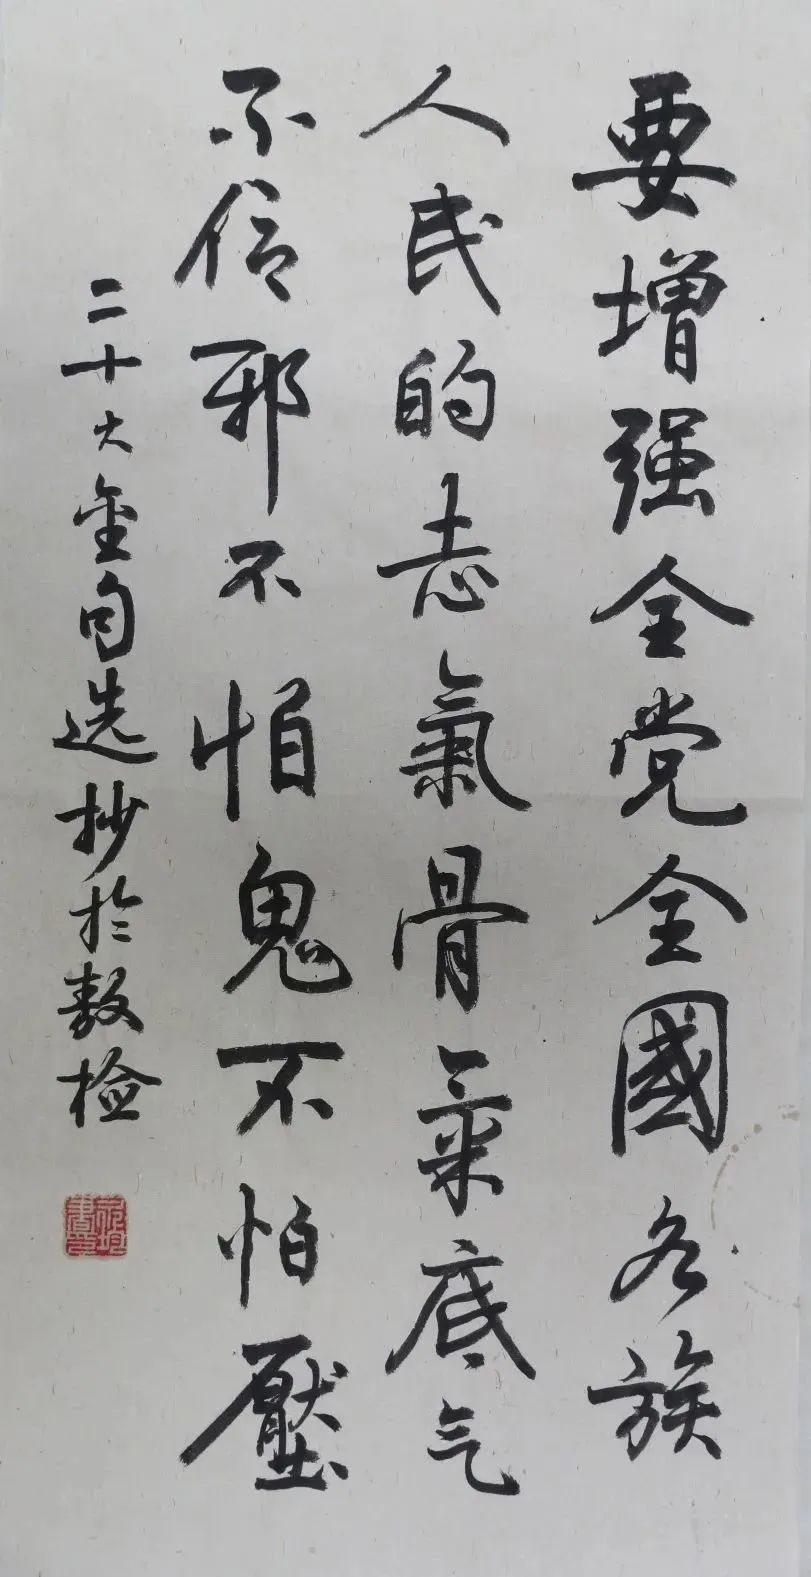 要增强全党全國各族
人民的志氣骨氣底气
不信邪不怕鬼不怕壓
二十大金句选抄於敖检